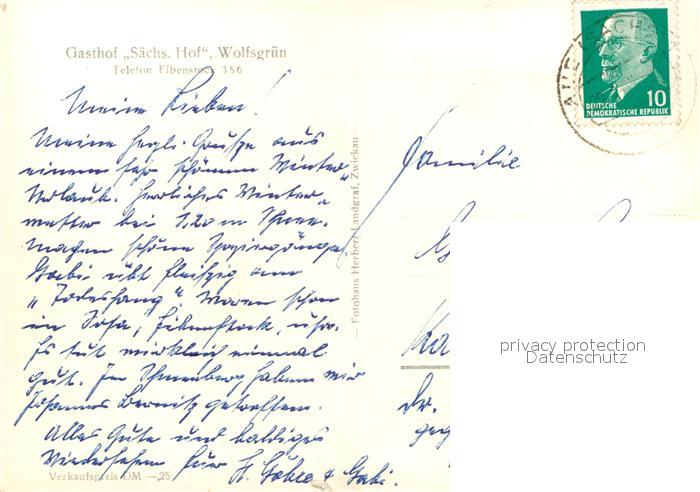 Gasthof „Sächs. Hof“, Wolfsgrün
Telefon Eibenstock 356
Meine Lieben!
Meine herzl. Grüße aus
einem sehr schönen Winter-
Urlaub. Herrliches Winter-
wetter bei 1.20 m Schnee.
Machen schöne Spaziergänge.
Gabi übt fleißig am
„Todeshang“. Waren schon
in Sosa, Eibenstock, usw.
Es tut wirklich einmal
gut. In Schneeberg haben wir
Johannes getroffen.
Alles Gute und baldiges
Wiedersehen & Gabi.
Verkaufspreis DM —,25
Fotohaus Herbert Landgraf, Zwickau
Familie
DEUTSCHE
DEMOKRATISCHE REPUBLIK
10
privacy protection
Datenschutz